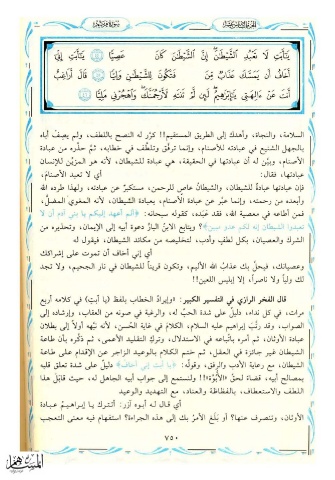 يَٰٓأَبَتِ لَا تَعْبُدِ ٱلشَّيْطَٰنَ إِنَّ ٱلشَّيْطَٰنَ كَانَ لِلرَّحْمَٰنِ عَصِيًّا يَٰٓأَبَتِ إِنِّىٓ
أَخَافُ أَن يَمَسَّكَ عَذَابٌ مِّنَ ٱلرَّحْمَٰنِ فَتَكُونَ لِلشَّيْطَٰنِ وَلِيًّا قَالَ أَرَاغِبٌ
أَنتَ عَنْ ءَالِهَتِى يَٰٓإِبْرَٰهِيمُ لَئِن لَّمْ تَنتَهِ لَأَرْجُمَنَّكَ وَٱهْجُرْنِى مَلِيًّا
السلامة، والنجاة، وأهدك إلى الطريق المستقيم!! كرّر له النصح باللطف، ولم يصِفْ أباه
بالجهل الشنيع في عبادته للأصنام، وإنما ترفّق وتلطّف في خطابه، ثم حذّره من عبادة
الأصنام، وبيّن له أن عبادتها في الحقيقة، هي عبادة للشيطان، لأنه هو المزيّن للإنسان
عبادتها، فقال:
أي لا تعبد الأصنام،
فإن عبادتها عبادةٌ للشيطان، والشيطانُ عاصٍ للرحمن، مستكبرٌ عن عبادته، ولهذا طرده الله
وأبعده من رحمته، وإنما عبّر عن عبادة الأصنام، بعبادة الشيطان، لأنه المغوي المضلّ،
فمن أطاعه في معصية الله، فقد عبَده، كقوله سبحانه: ﴿ألم أعهد إليكم يا بني آدم أن لا
تعبدوا الشيطان إنه لكم عدو مبين﴾؟ ويتابع الابنُ البارّ دعوة أبيه إلى الإيمان، وتحذيره من
الشرك والعصيان، بكل لطفٍ وأدب، لتخليصه من مكائد الشيطان، فيقول له
أي إني أخاف أن تموت على إشراكك
وعصيانك، فيحلّ بك عذابُ الله الأليم، وتكون قريناً للشيطان في نار الجحيم، ولا تجد
لك ولياً ولا ناصراً، إلا إبليس اللعين!!
قال الفخر الرازي في التفسير الكبير: «وإيرادُ الخطاب بلفظ (يا أبتِ) في كلامه أربع
مرات، في كل نداء، دليلٌ على شدة الحبّ له، والرغبة في صونه من العقاب، وإرشاده إلى
الصواب، وقد رتّب إبراهيم عليه السلام، الكلام في غاية الحُسن، لأنه نبّهه أولاً إلى بطلان
عبادة الأوثان، ثم أمره باتّباعه في الاستدلال، وترك التقليد الأعمى، ثم ذكّره بأن طاعة
الشيطان غير جائزة في العقل، ثم ختم الكلام بالوعيد الزاجر عن الإقدام على طاعة
الشيطان، مع رعاية الأدب والرفق، وقولُه: ﴿يا أبت إني أخاف﴾ دليلٌ على شدة تعلق قلبه
بمصالح أبيه، قضاءً لحقّ «الأبوّة»!! ولنستمع إلى جواب أبيه الجاهل له، حيث قابَل هذا
اللطف والاستعطاف، بالفظاظة والعناد، مع التهديد والوعيد
أي قال له أبوه آزر: أتترك يا إبراهيم عبادة
الأوثان، وتنصرف عنها؟ أو بَلَغ الأمرُ بك إلى هذه الجراءة؟ استفهام فيه معنى التعجب
٧٥٠